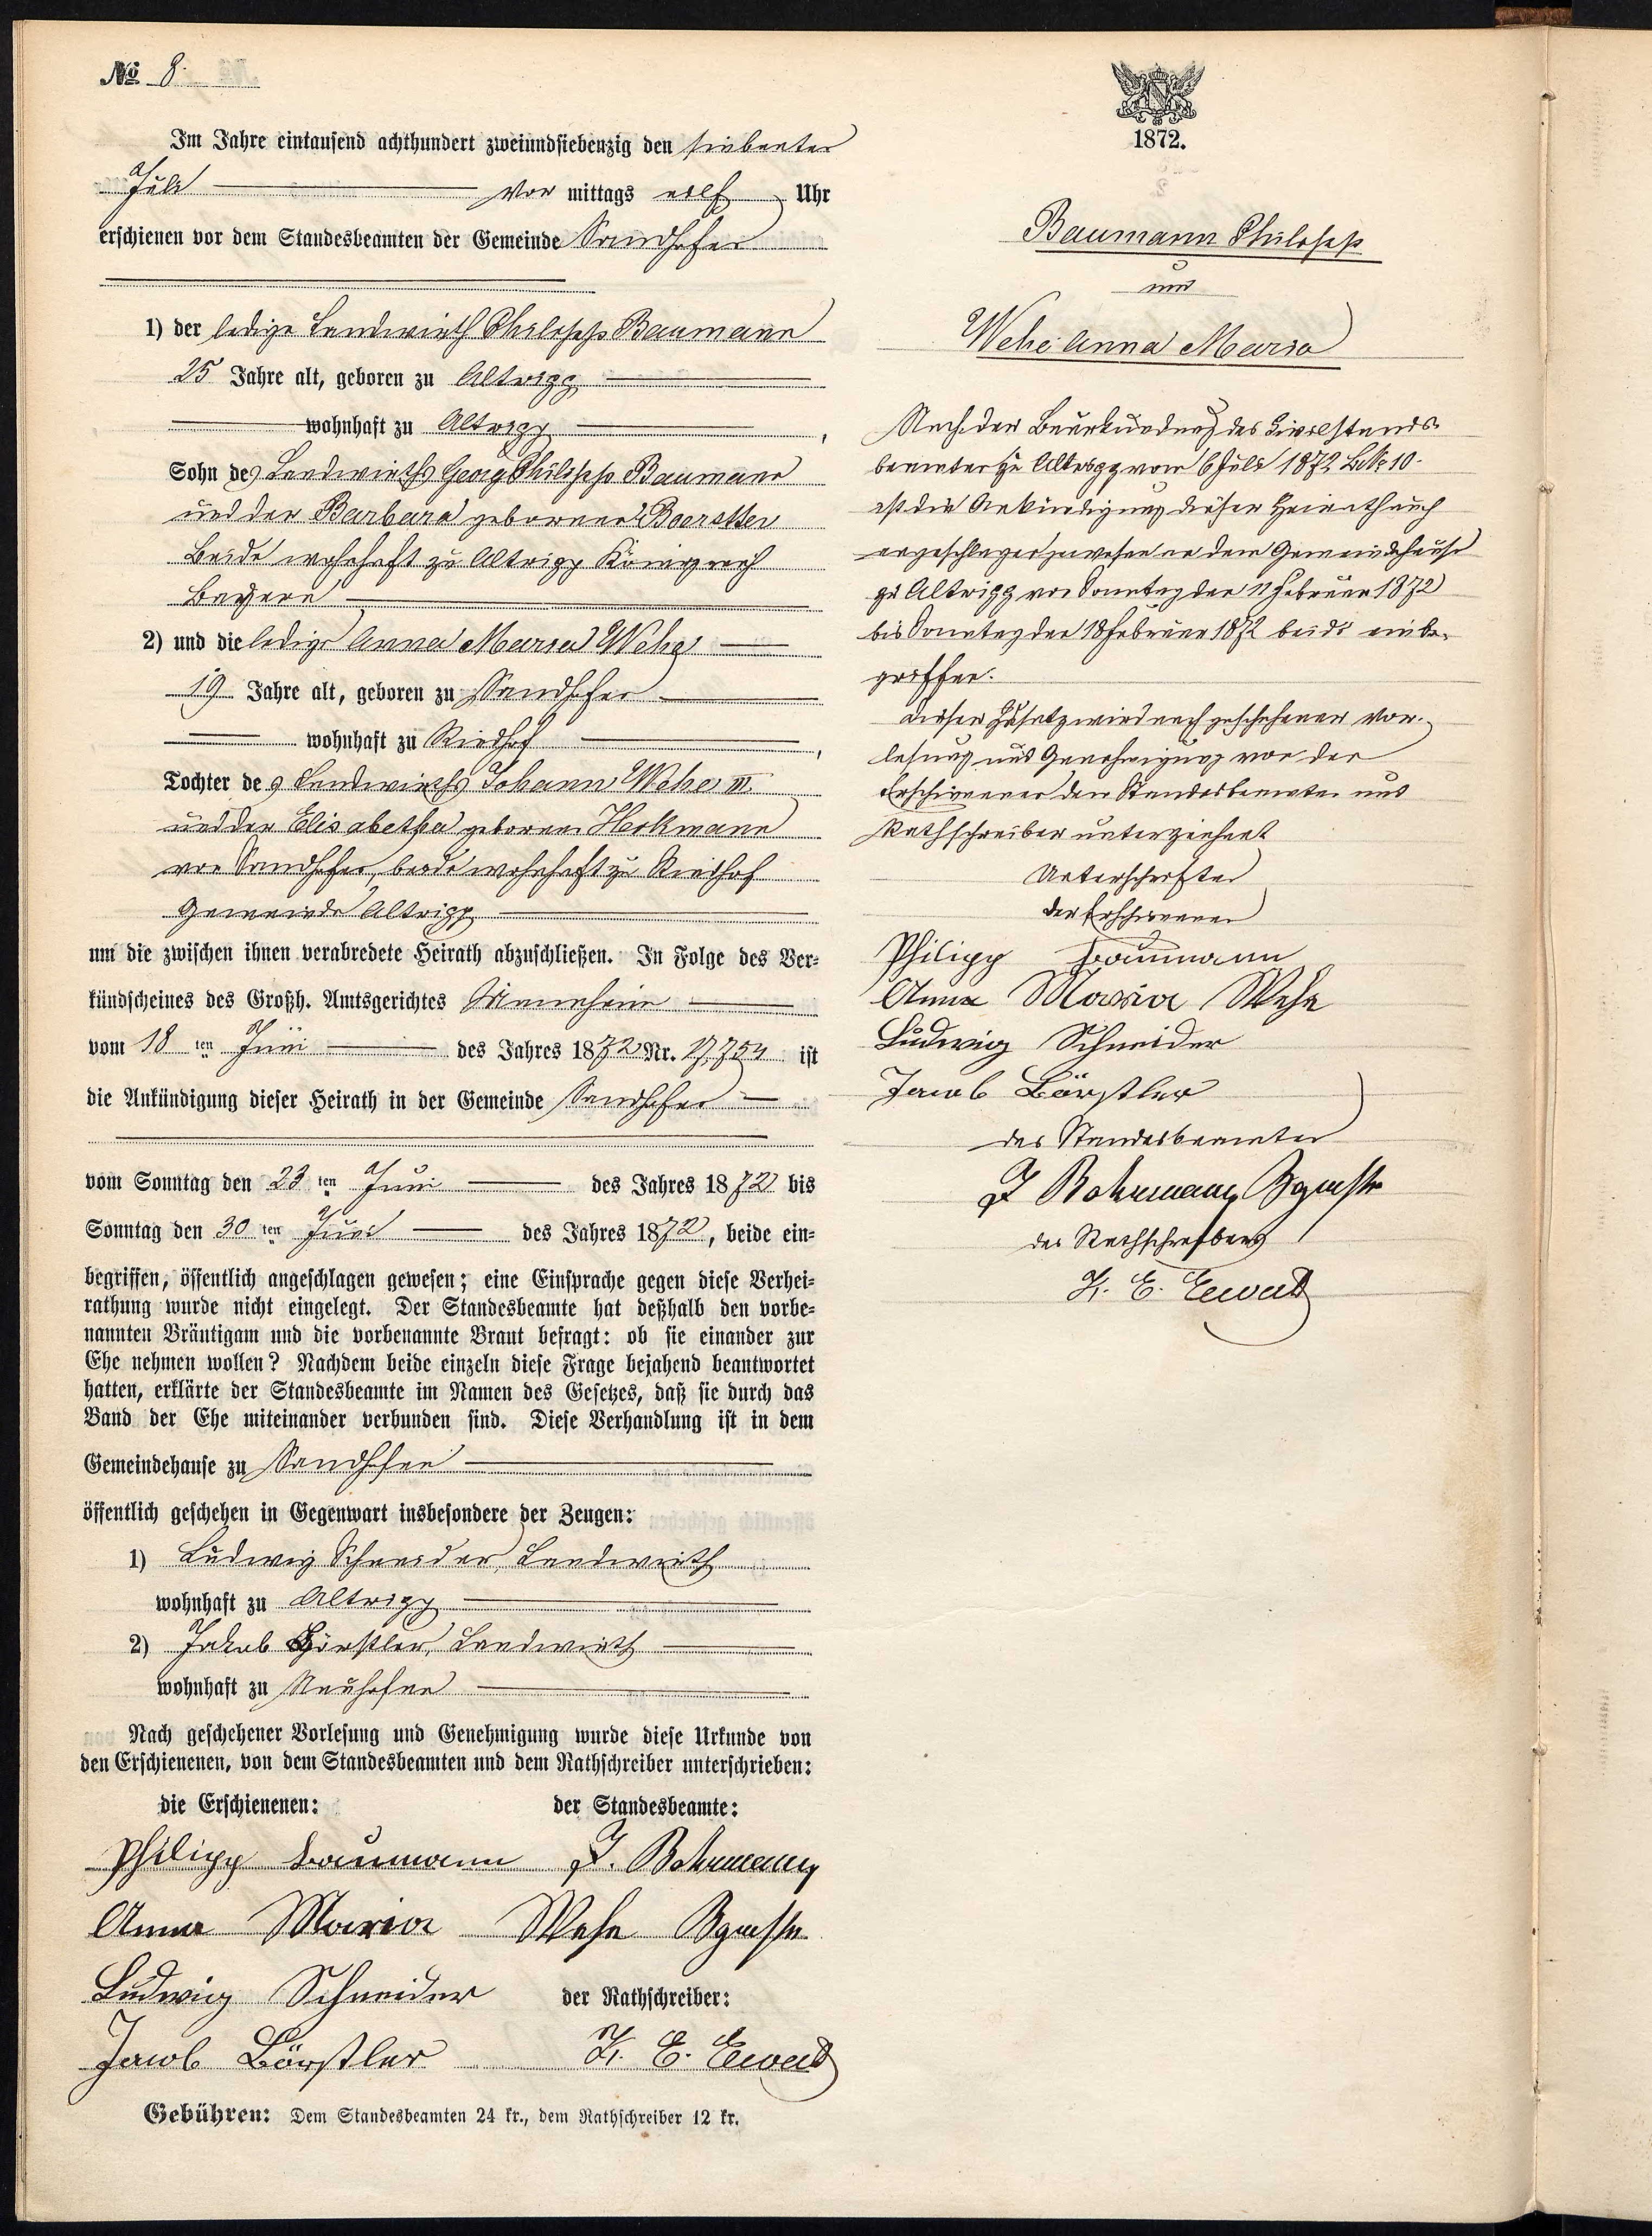 № 8.
Im Jahre eintausend achthundert zweiundsiebenzig den siebenten
Juli vor mittags eilf Uhr
erschienen vor dem Standesbeamten der Gemeinde Sandhofen
1) der ledige Landwirth Philipp Baumann
25 Jahre alt, geboren zu Altripp
wohnhaft zu Altripp,
Sohn des Landwirths Georg Philipp Baumann
und der Barbara geborenen Boerstler
beide wohnhaft zu Altripp Königreich
Bayern
2) und die ledige Anna Maria Wehe
19 Jahre alt, geboren zu Sandhofen
wohnhaft zu Riedhof,
Tochter des Landwirths Johann Wehe III.
und der Elisabetha geborenen Herkmann
von Sandhofen, beide wohnhaft zu Riedhof
Gemeinde Altripp
um die zwischen ihnen verabredete Heirath abzuschließen. In Folge des Ver=
kündscheines des Großh. Amtsgerichtes Mannheim
vom 18 ten Juni des Jahres 1872 Nr. 17,754 ist
die Ankündigung dieser Heirath in der Gemeinde Sandhofen
vom Sonntag den 23 ten Juni des Jahres 1872 bis
Sonntag den 30 ten Juni des Jahres 1872, beide ein=
begriffen, öffentlich angeschlagen gewesen; eine Einsprache gegen diese Verhei=
rathung wurde nicht eingelegt. Der Standesbeamte hat deßhalb den vorbe=
nannten Bräutigam und die vorbenannte Braut befragt: ob sie einander zur
Ehe nehmen wollen? Nachdem beide einzeln diese Frage bejahend beantwortet
hatten, erklärte der Standesbeamte im Namen des Gesetzes, daß sie durch das
Band der Ehe miteinander verbunden sind. Diese Verhandlung ist in dem
Gemeindehause zu Sandhofen
öffentlich geschehen in Gegenwart insbesondere der Zeugen:
1) Ludwig Schneider, Landwirth
wohnhaft zu Altripp
2) Jakob Börstler, Landwirth
wohnhaft zu Neuhofen
Nach geschehener Vorlesung und Genehmigung wurde diese Urkunde von
den Erschienenen, von dem Standesbeamten und dem Rathschreiber unterschrieben:
die Erschienenen: der Standesbeamte:
Philipp Baumann J. Bohrmann
Anna Maria Wehe Bgmstr
Ludwig Schneider der Rathschreiber:
Jacob Börstler K. E. Ewald
Gebühren: Dem Standesbeamten 24 kr., dem Rathschreiber 12 kr.
1872.
Baumann Philipp
und
Wehe Anna Maria
Nach der Beurkundung des Civilstands=
beamten zu Altripp vom 6 Juli 1872 No 10.
ist die Ankündigung dieser Heirath auch
angeschlagen gewesen an dem Gemeindehause
zu Altripp von Sonntag den 11 Februar 1872
bis Sonntag den 18 Februar 1872 beide einbe=
griffen.
Dieser Zusatz wird nach geschehener Vor=
lesung und Genehmigung von den
Erschienenen dem Standesbeamten und
Rathschreiber unterzeichnet
Unterschriften
der Erschienenen
Philipp Baumann
Anna Maria Wehe
Ludwig Schneider
Jacob Börstler
des Standesbeamten
J Bohrmann Bgmstr
des Rathschreibers
K. E. Ewald